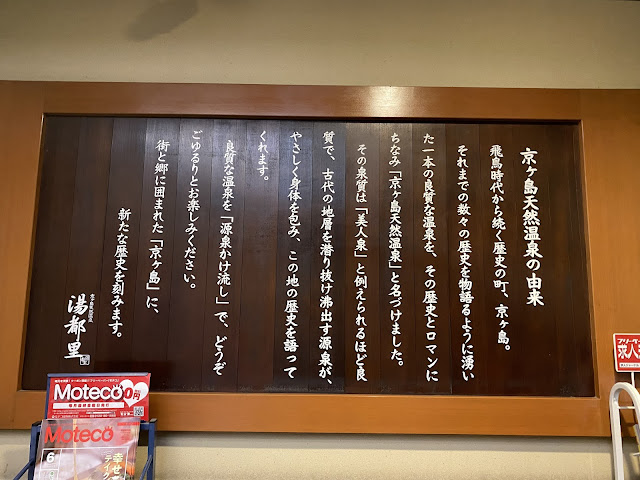 京ヶ島天然温泉の由来
飛鳥時代から続く歴史の町、京ヶ島。
それまでの数々の歴史を物語るように湧い
た一本の良質な温泉を、その歴史とロマンに
ちなみ「京ヶ島天然温泉」と名づけました。
その泉質は「美人泉」と例えられるほど良
質で、古代の地層を潜り抜け沸出す源泉が、
やさしく身体を包み、この地の歴史を語って
くれます。
良質な温泉を「源泉かけ流し」で、どうぞ
ごゆるりとお楽しみください。
街と郷に囲まれた「京ヶ島」に、
新たな歴史を刻みます。
京ヶ島天然温泉
湯都里
Moteco
0円
Moteco
6
幸せ
フリーペーパー
求人